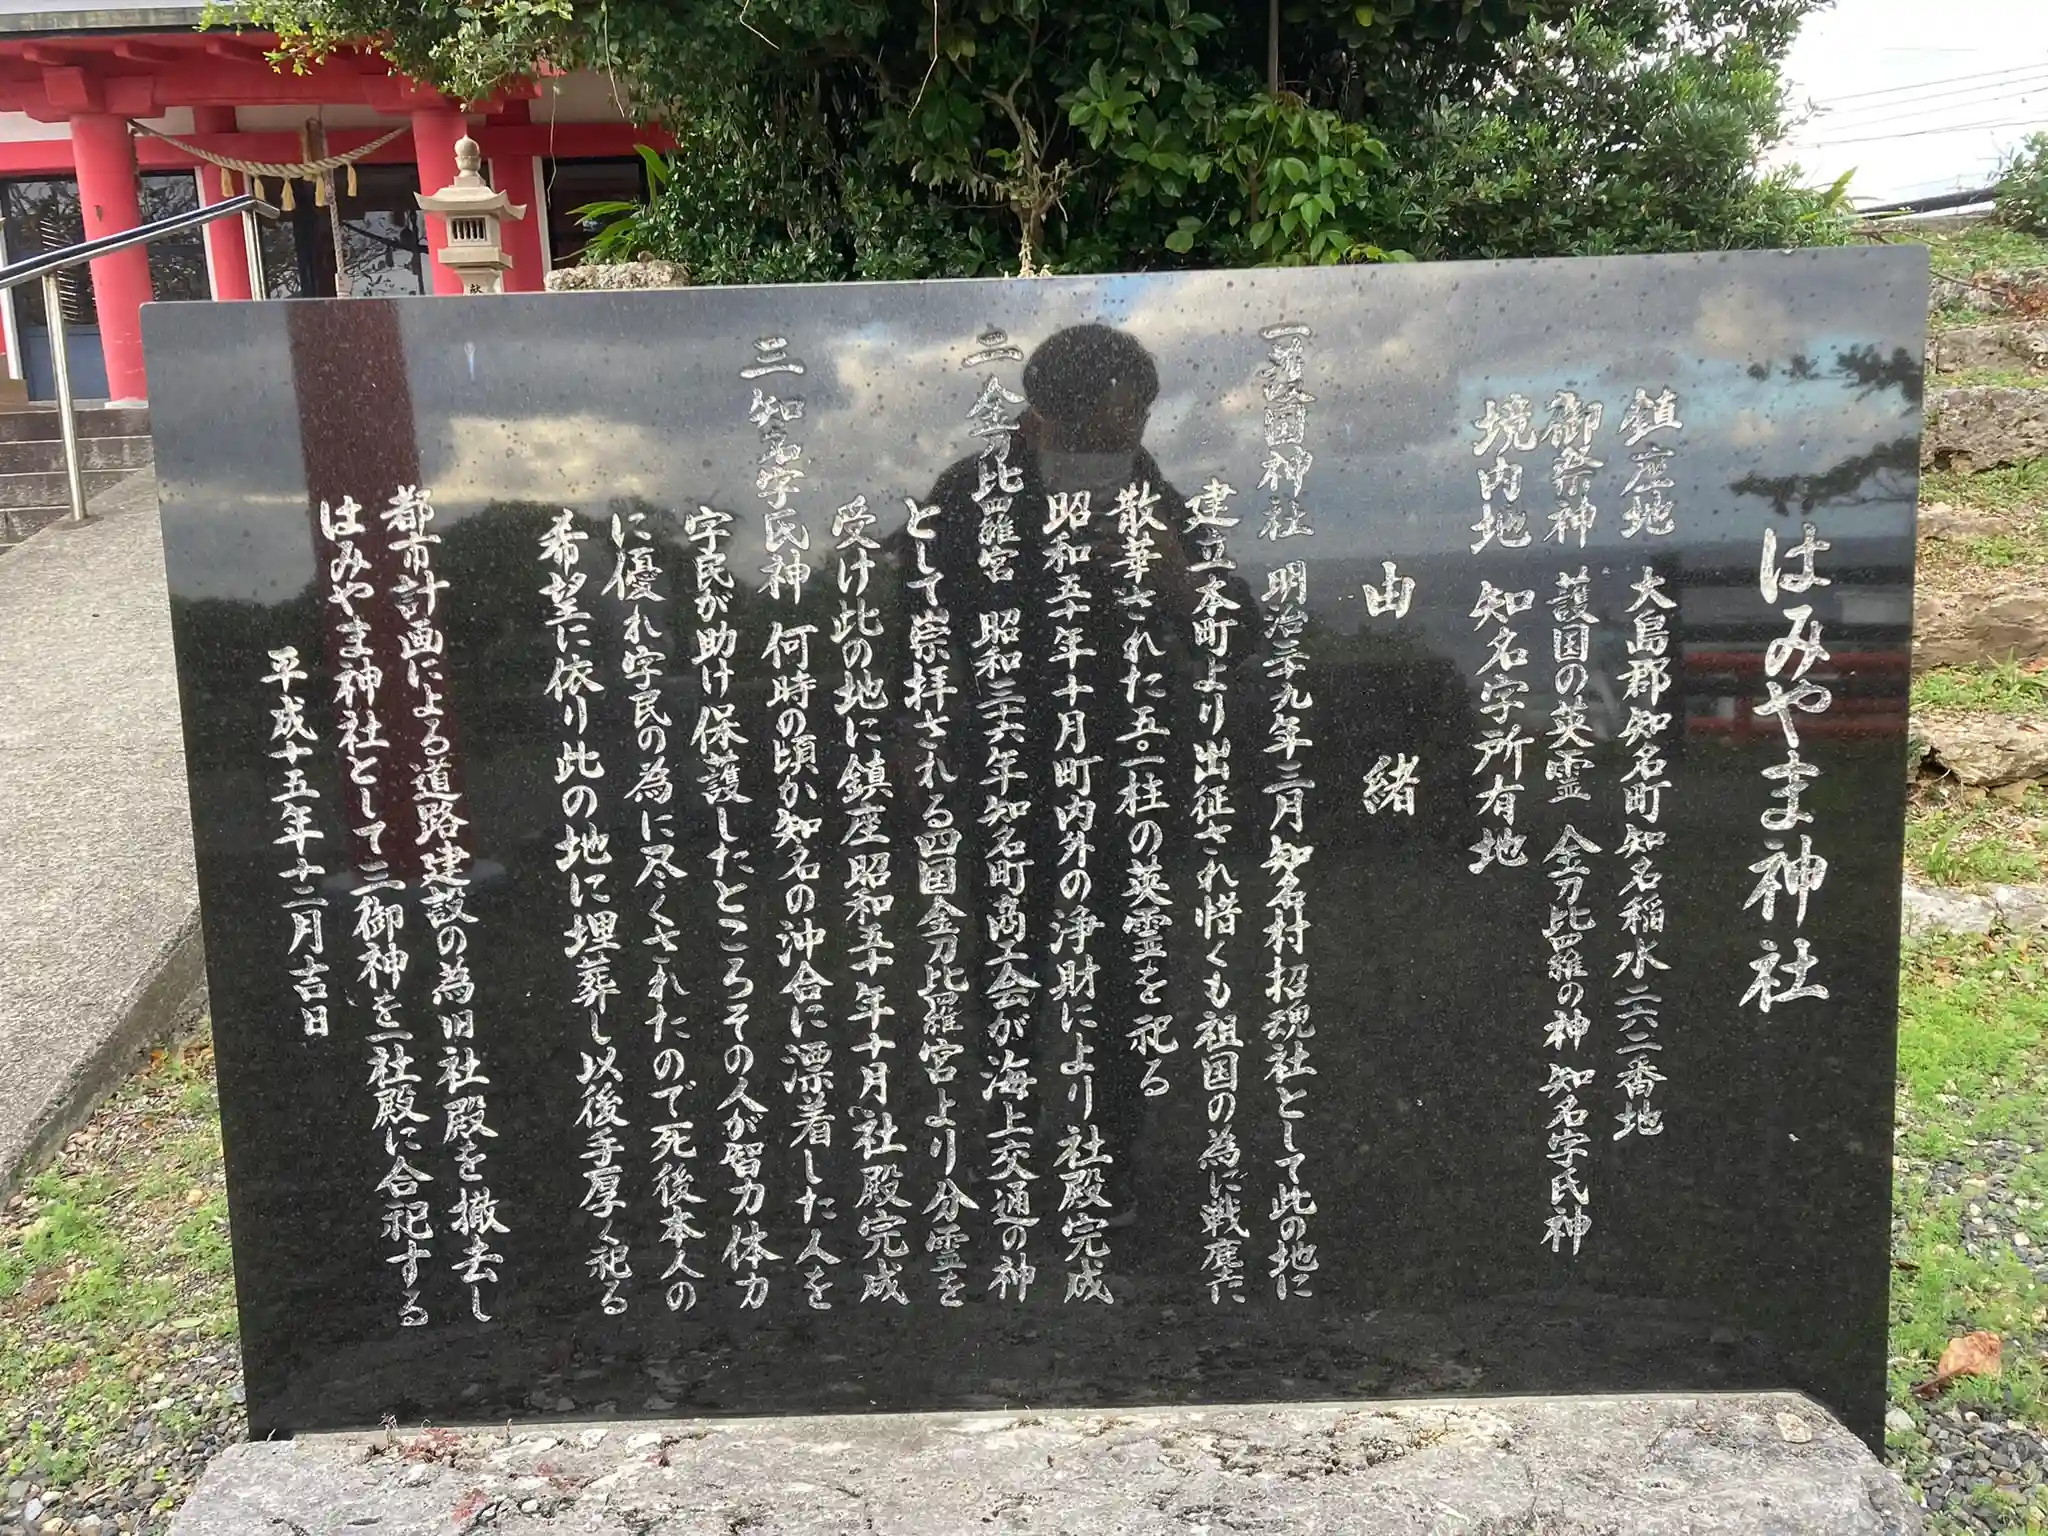 はみやま神社
鎮座地 大島郡知名町知名稲水二六二番地
御祭神 護国の英霊 金刀比羅の神 知名字氏神
境内地 知名字所有地
由緒
一 護国神社 明治三十九年二月知名村招魂社として此の地に
建立本町より出征され惜くも祖国の為に戦塵に
散華された五〇一柱の英霊を祀る
昭和五十年十月町内外の浄財により社殿完成
二 金刀比羅宮 昭和三十六年知名町商工会が海上交通の神
として崇拝される四国金刀比羅宮より分霊を
受け此の地に鎮座昭和五十年十月社殿完成
三 知名字氏神 何時の頃か知名の沖合に漂着した人を
字民が助け保護したところその人が智力体力
に優れ字民の為に尽くされたので死後本人の
希望に依り此の地に埋葬し以後手厚く祀る
都市計画による道路建設の為旧社殿を撤去し
はみやま神社として三御神を一社殿に合祀する
平成十五年十二月吉日